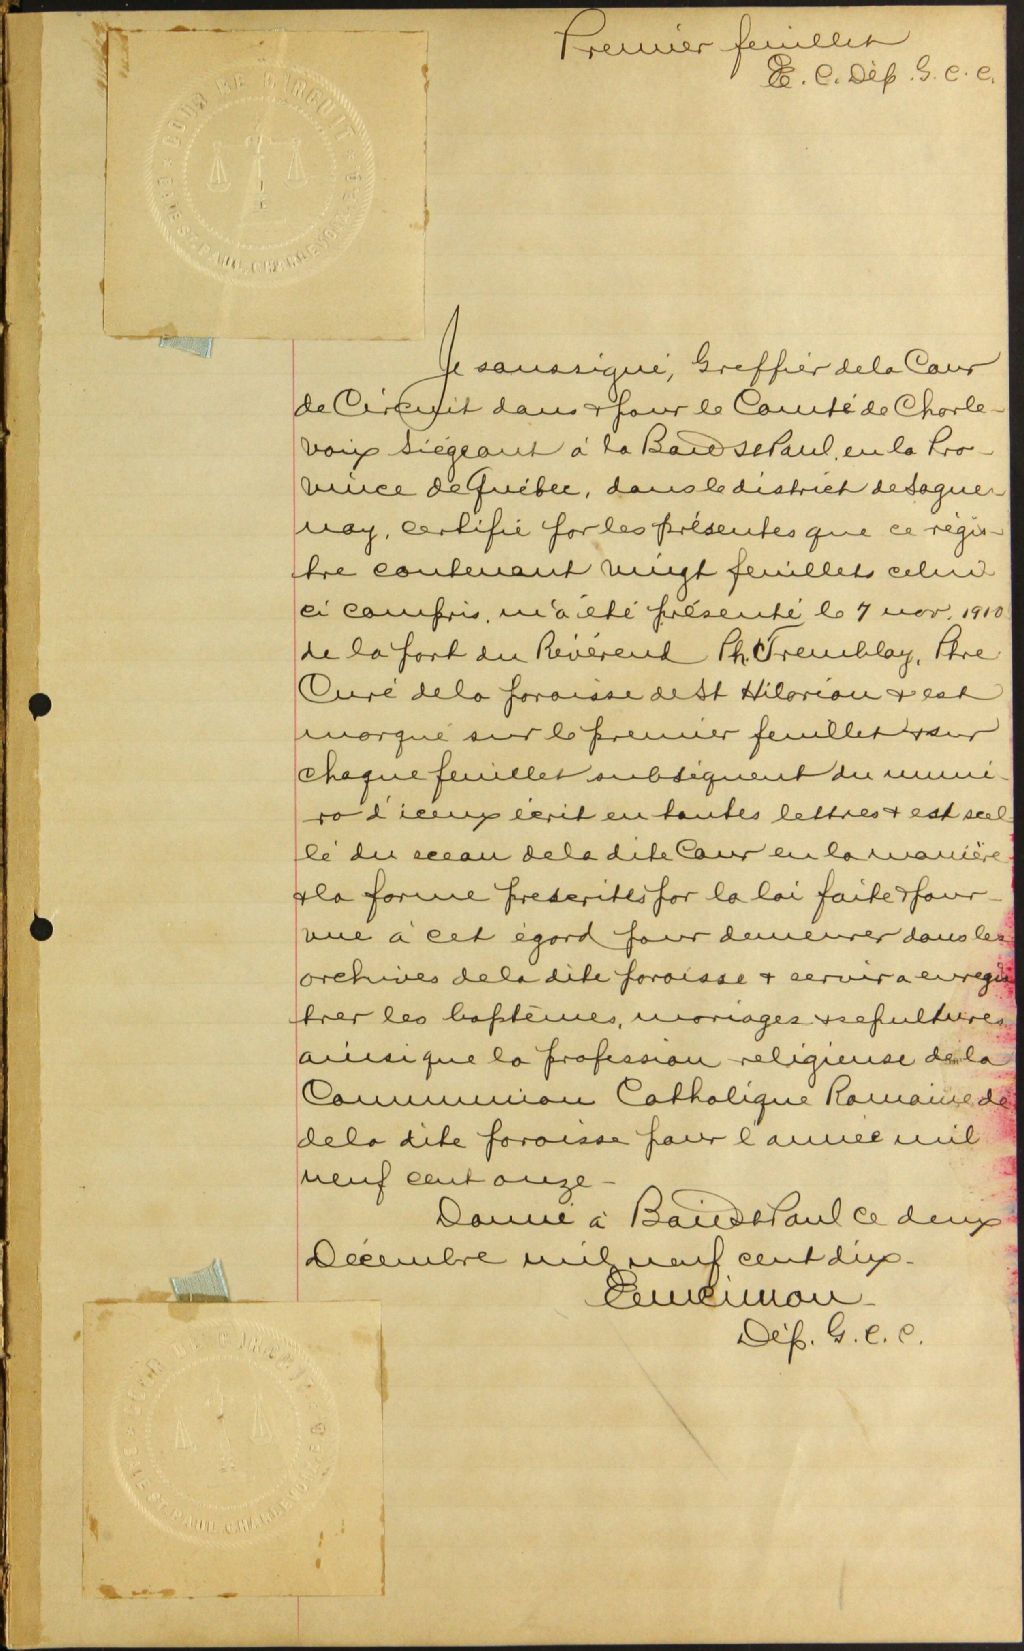 Premier feuillet
E. C. Dép. G. C. C.
COUR DE CIRCUIT
BAIE ST. PAUL, CHARLEVOIX, P.Q.
Je soussigné, Greffier de la Cour
de Circuit dans & pour le Comté de Charle-
voix siégeant à la Baie St Paul, en la Pro-
vince de Québec, dans le district de Sague-
nay, certifie par les présentes que ce régis-
tre contenant vingt feuillets celui
ci compris, m'a été présenté le 7 nov. 1910
de la part du Révérend Ph. Tremblay, Ptre
Curé de la paroisse de St Hilarion & est
marqué sur le premier feuillet & sur
chaque feuillet subséquent du numé-
ro d'iceux écrit en toutes lettres & est scel-
lé du sceau de la dite Cour en la manière
& la forme prescrites par la loi faite & pour-
vue à cet égard pour demeurer dans les
archives de la dite paroisse & servir a enregis
trer les baptêmes, mariages & sepultures
ainsi que la profession religieuse de la
Communion Catholique Romaine de
de la dite paroisse pour l'année mil
neuf cent onze -
Donné à Baie St Paul ce deux
Décembre mil neuf cent dix -
Dép. G. C. C.
COUR DE CIRCUIT
BAIE ST. PAUL, CHARLEVOIX, P.Q.